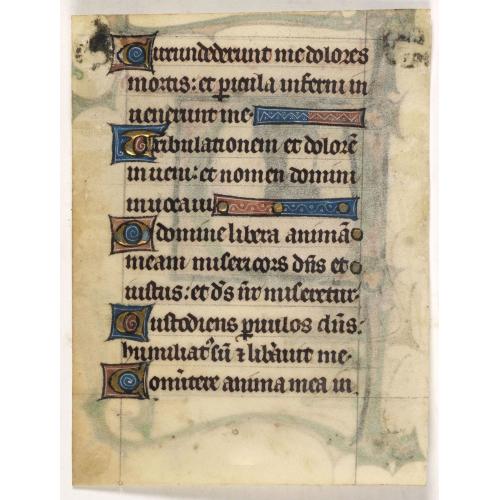 Circundederunt me dolores
mortis: et pericula inferni in
uenerunt me.
Tribulationem et dolorē
inueni: et nomen domini
inuocaui
O domine libera animā
meam misericors dn̄s et
iustus: et ds̄ nr̄ miseretur.
Custodiens paruulos dn̄s:
humiliat᷒ sū ⁊ liƀauit me.
Conu̇tere anima mea in